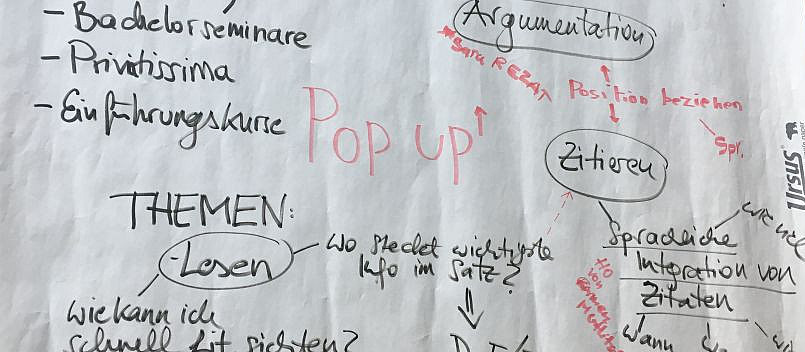 - Bachelorseminare
- Privatissima
- Einführungskurse
Pop up
Argumentation
*Sara REZAT
Position beziehen
Spr.
Zitieren
Ursus
THEMEN:
- Lesen
Wo steckt wichtigste
Info im Satz?
wie kann ich
schnell Lit sichten?
Sprachliche
Integration von
Zitaten
Wann
HO
von